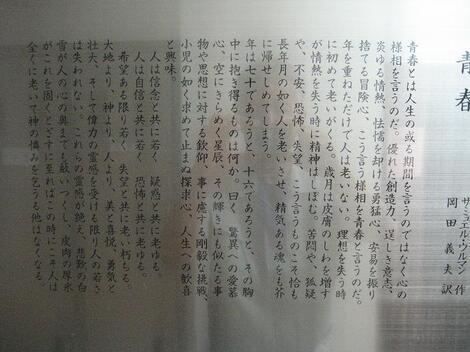 青春
サムエル・ウルマン 作
岡田 義夫 訳
青春とは人生の或る期間を言うのではなく心の
様相を言うのだ。優れた創造力、逞しき意志、
炎ゆる情熱、怯懦を却ける勇猛心、安易を振り
捨てる冒険心、こう言う様相を青春と言うのだ。
年を重ねただけで人は老いない。理想を失う時
に初めて老いがくる。歳月は皮膚のしわを増す
が情熱を失う時に精神はしぼむ。苦悶や、狐疑
や、不安、恐怖、失望、こう言うものこそ恰も
長年月の如く人を老いさせ、精気ある魂をも芥
に帰せしめてしまう。
年は七十であろうと、十六であろうと、その胸
中に抱き得るものは何か。曰く 驚異への愛慕
心、空にきらめく星辰、その輝きにも似たる事
物や思想に対する欽仰、事に處する剛毅な挑戦、
小児の如く求めて止まぬ探求心、人生への歓喜
と興味。
人は信念と共に若く 疑惑と共に老ゆる。
人は自信と共に若く 恐怖と共に老ゆる。
希望ある限り若く 失望と共に老い朽ちる。
大地より、神より、人より、美と喜悦、勇気と
壮大、そして偉力の霊感を受ける限り人の若さ
は失われない。これらの霊感が絶え、悲歎の白
雪が人の心の奥までも蔽いつくし、皮肉の厚氷
がこれを固くとざすに至ればこの時にこそ人は
全くに老いて神の憐みを乞うる他はなくなる。